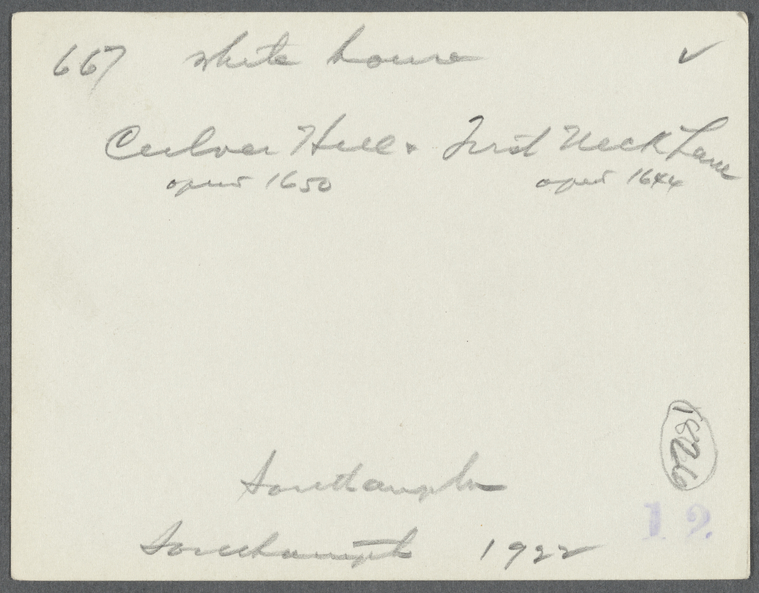 667 White house ✓
Culver Hill & First Neck Lane
open 1650 open 1644
1826
Southampton
12
Southampton 1922